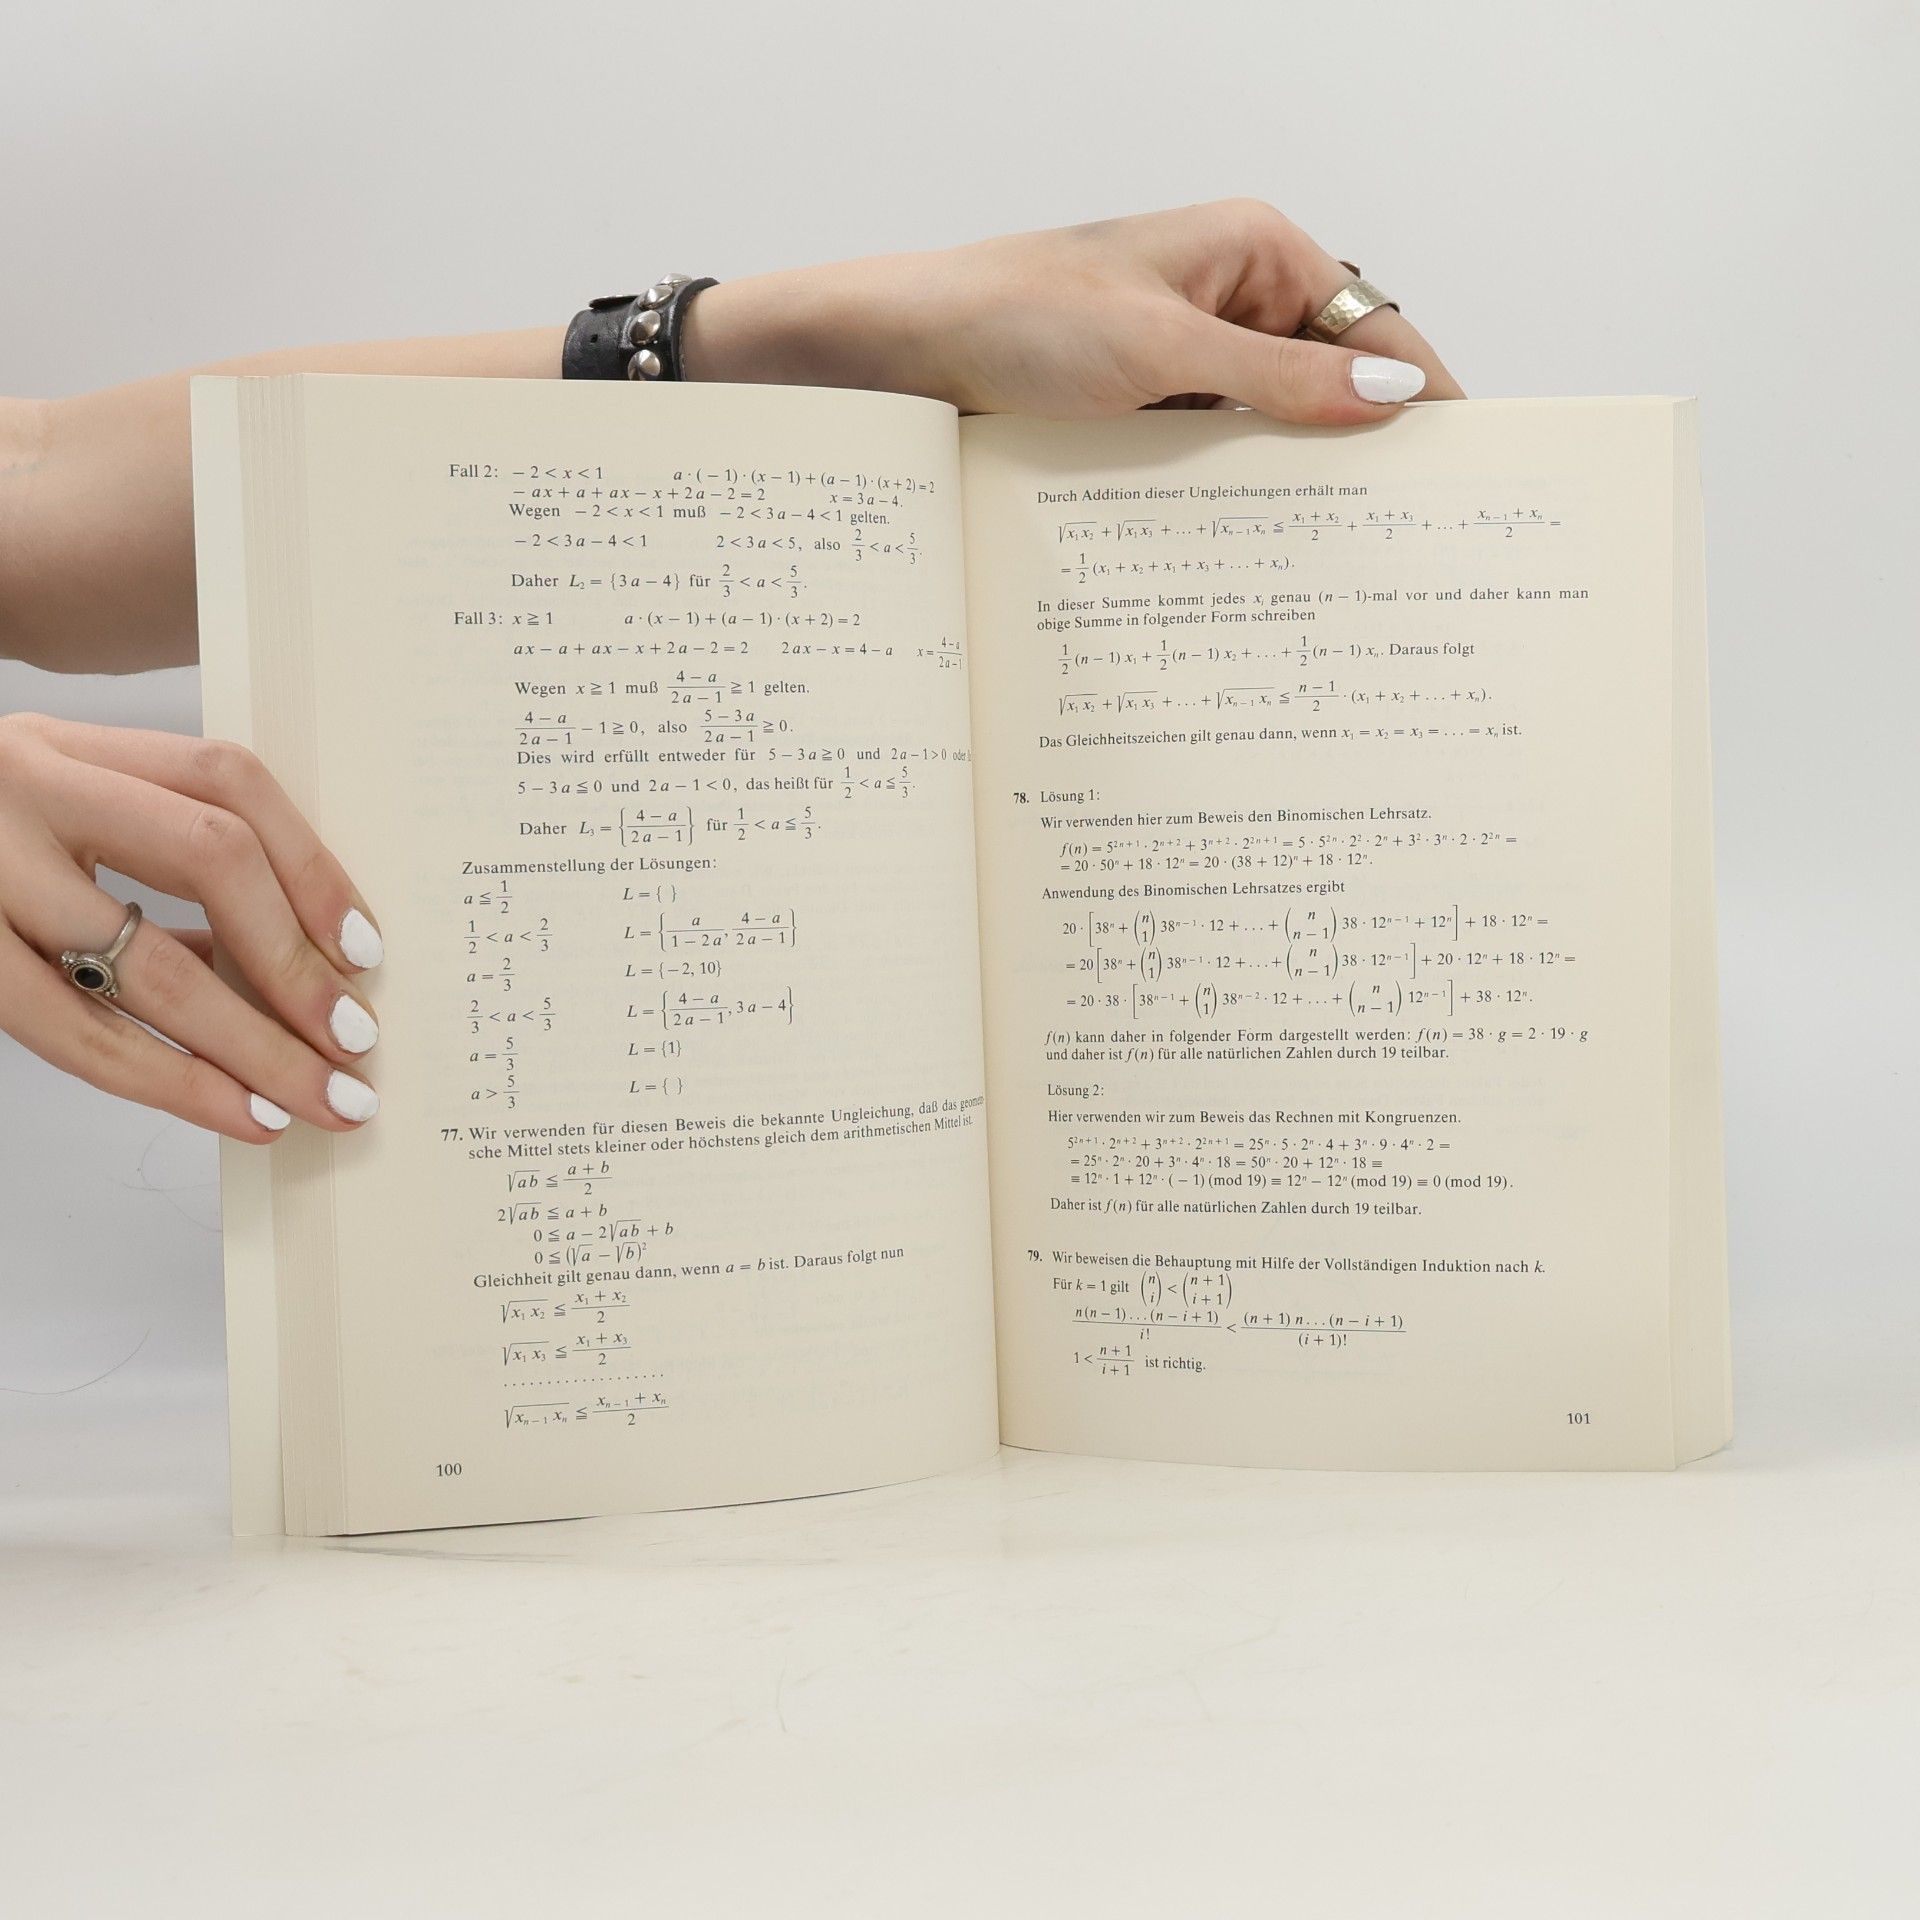 Fall 2: − 2 < x < 1 a · ( − 1) · (x − 1) + (a − 1) · (x + 2) = 2
− ax + a + ax − x + 2a − 2 = 2 x = 3a − 4.
Wegen − 2 < x < 1 muß − 2 < 3a − 4 < 1 gelten.
− 2 < 3a − 4 < 1 2 < 3a < 5, also 2/3 < a < 5/3.
Daher L₂ = {3a − 4} für 2/3 < a < 5/3.
Fall 3: x ≧ 1 a · (x − 1) + (a − 1) · (x + 2) = 2
ax − a + ax − x + 2a − 2 = 2 2ax − x = 4 − a x = (4 − a)/(2a − 1)
Wegen x ≧ 1 muß (4 − a)/(2a − 1) ≧ 1 gelten.
(4 − a)/(2a − 1) − 1 ≧ 0, also (5 − 3a)/(2a − 1) ≧ 0.
Dies wird erfüllt entweder für 5 − 3a ≧ 0 und 2a − 1 > 0 oder
5 − 3a ≦ 0 und 2a − 1 < 0, das heißt für 1/2 < a ≦ 5/3.
Daher L₃ = {(4 − a)/(2a − 1)} für 1/2 < a ≦ 5/3.
Zusammenstellung der Lösungen:
a ≦ 1/2 L = { }
1/2 < a < 2/3 L = {a/(1 − 2a), (4 − a)/(2a − 1)}
a = 2/3 L = {−2, 10}
2/3 < a < 5/3 L = {(4 − a)/(2a − 1), 3a − 4}
a = 5/3 L = {1}
a > 5/3 L = { }
77. Wir verwenden für diesen Beweis die bekannte Ungleichung, daß das geometri-
sche Mittel stets kleiner oder höchstens gleich dem arithmetischen Mittel ist.
√(ab) ≦ (a + b)/2
2√(ab) ≦ a + b
0 ≦ a − 2√(ab) + b
0 ≦ (√a − √b)²
Gleichheit gilt genau dann, wenn a = b ist. Daraus folgt nun
√(x₁ x₂) ≦ (x₁ + x₂)/2
√(x₁ x₃) ≦ (x₁ + x₃)/2
. . . . . . . . . . . . . . . . . . .
√(xₙ₋₁ xₙ) ≦ (xₙ₋₁ + xₙ)/2
100
Durch Addition dieser Ungleichungen erhält man
√(x₁ x₂) + √(x₁ x₃) + ... + √(xₙ₋₁ xₙ) ≦ (x₁ + x₂)/2 + (x₁ + x₃)/2 + ... + (xₙ₋₁ + xₙ)/2 =
= 1/2 (x₁ + x₂ + x₁ + x₃ + ... + xₙ).
In dieser Summe kommt jedes xᵢ genau (n − 1)-mal vor und daher kann man
obige Summe in folgender Form schreiben
1/2 (n − 1) x₁ + 1/2 (n − 1) x₂ + ... + 1/2 (n − 1) xₙ. Daraus folgt
√(x₁ x₂) + √(x₁ x₃) + ... + √(xₙ₋₁ xₙ) ≦ (n − 1)/2 · (x₁ + x₂ + ... + xₙ).
Das Gleichheitszeichen gilt genau dann, wenn x₁ = x₂ = x₃ = ... = xₙ ist.
78. Lösung 1:
Wir verwenden hier zum Beweis den Binomischen Lehrsatz.
f(n) = 5²ⁿ⁺¹ · 2ⁿ⁺² + 3ⁿ⁺² · 2²ⁿ⁺¹ = 5 · 5²ⁿ · 2² · 2ⁿ + 3² · 3ⁿ · 2 · 2²ⁿ =
= 20 · 50ⁿ + 18 · 12ⁿ = 20 · (38 + 12)ⁿ + 18 · 12ⁿ.
Anwendung des Binomischen Lehrsatzes ergibt
20 · [38ⁿ + (n 1) 38ⁿ⁻¹ · 12 + ... + (n n − 1) 38 · 12ⁿ⁻¹ + 12ⁿ] + 18 · 12ⁿ =
= 20 [38ⁿ + (n 1) 38ⁿ⁻¹ · 12 + ... + (n n − 1) 38 · 12ⁿ⁻¹] + 20 · 12ⁿ + 18 · 12ⁿ =
= 20 · 38 · [38ⁿ⁻¹ + (n 1) 38ⁿ⁻² · 12 + ... + (n n − 1) 12ⁿ⁻¹] + 38 · 12ⁿ.
f(n) kann daher in folgender Form dargestellt werden: f(n) = 38 · g = 2 · 19 · g
und daher ist f(n) für alle natürlichen Zahlen durch 19 teilbar.
Lösung 2:
Hier verwenden wir zum Beweis das Rechnen mit Kongruenzen.
5²ⁿ⁺¹ · 2ⁿ⁺² + 3ⁿ⁺² · 2²ⁿ⁺¹ = 25ⁿ · 5 · 2ⁿ · 4 + 3ⁿ · 9 · 4ⁿ · 2 =
= 25ⁿ · 2ⁿ · 20 + 3ⁿ · 4ⁿ · 18 = 50ⁿ · 20 + 12ⁿ · 18 ≡
≡ 12ⁿ · 1 + 12ⁿ · ( − 1) (mod 19) ≡ 12ⁿ − 12ⁿ (mod 19) ≡ 0 (mod 19).
Daher ist f(n) für alle natürlichen Zahlen durch 19 teilbar.
79. Wir beweisen die Behauptung mit Hilfe der Vollständigen Induktion nach k.
Für k = 1 gilt (n i) < (n + 1 i + 1)
n(n − 1)...(n − i + 1)/i! < (n + 1) n...(n − i + 1)/(i + 1)!
1 < (n + 1)/(i + 1) ist richtig.
101